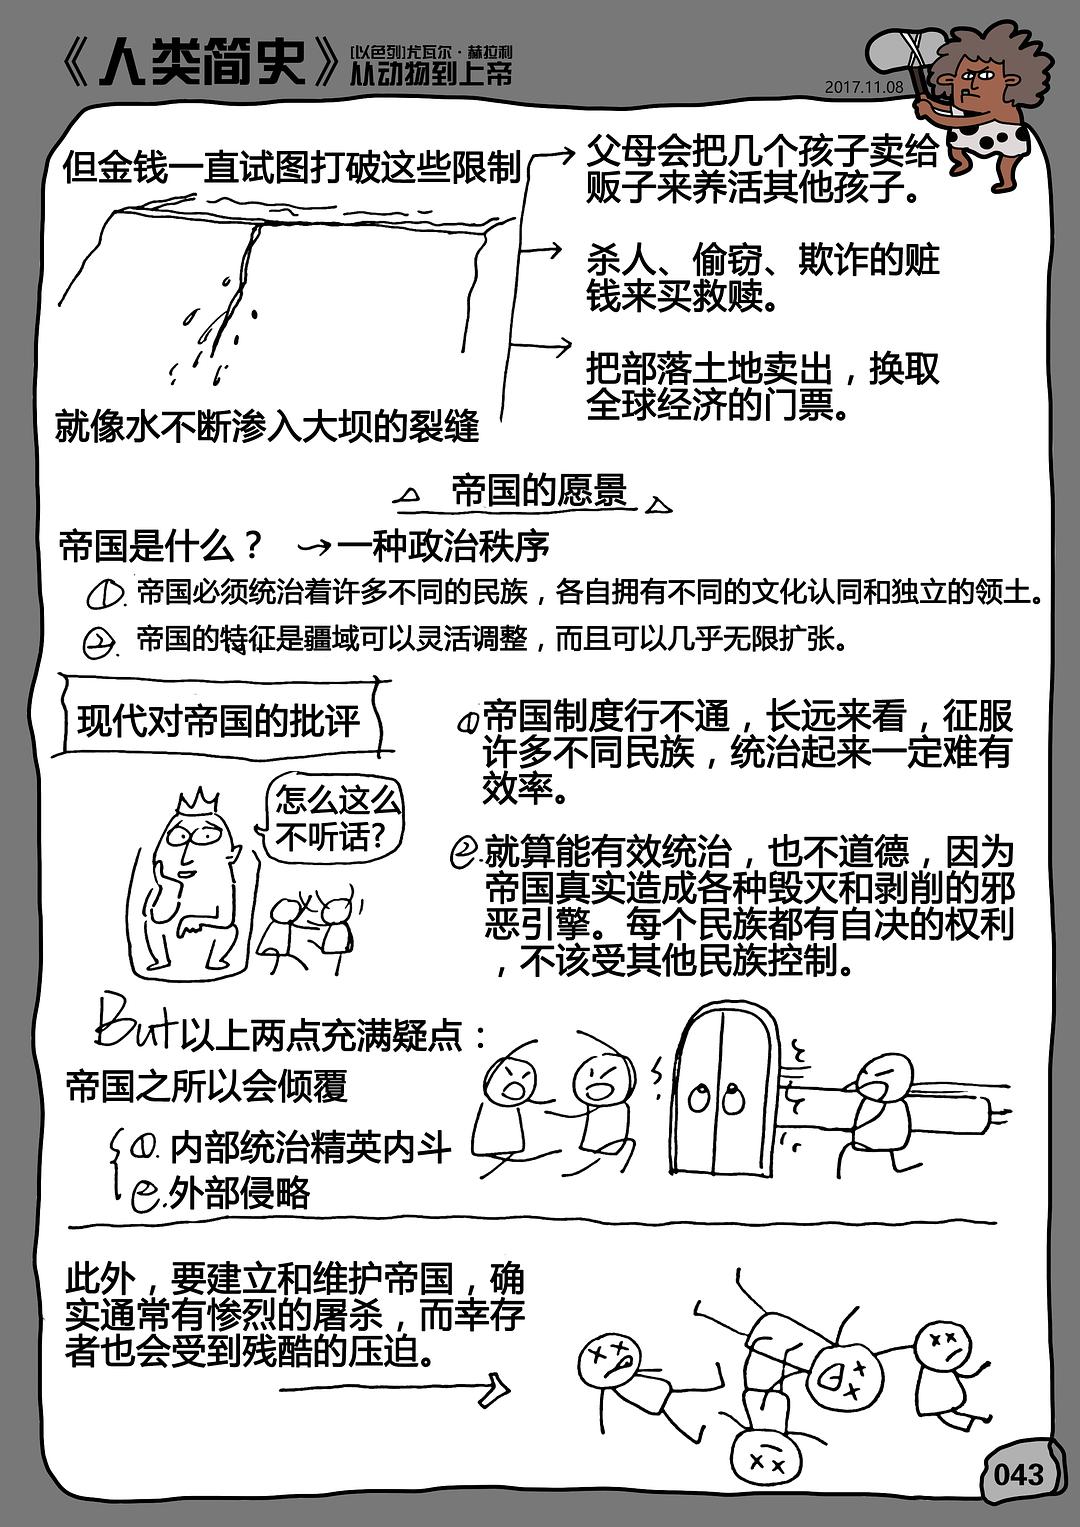 《人类简史》
[以色列]尤瓦尔·赫拉利
从动物到上帝
2017.11.08
但金钱一直试图打破这些限制
父母会把几个孩子卖给
贩子来养活其他孩子。
杀人、偷窃、欺诈的赃
钱来买救赎。
把部落土地卖出，换取
全球经济的门票。
就像水不断渗入大坝的裂缝
帝国的愿景
帝国是什么？ →一种政治秩序
①. 帝国必须统治着许多不同的民族，各自拥有不同的文化认同和独立的领土。
②. 帝国的特征是疆域可以灵活调整，而且可以几乎无限扩张。
现代对帝国的批评
怎么这么
不听话?
①帝国制度行不通，长远来看，征服
许多不同民族，统治起来一定难有
效率。
②.就算能有效统治，也不道德，因为
帝国真实造成各种毁灭和剥削的邪
恶引擎。每个民族都有自决的权利
，不该受其他民族控制。
But以上两点充满疑点：
帝国之所以会倾覆
①. 内部统治精英内斗
②.外部侵略
此外，要建立和维护帝国，确
实通常有惨烈的屠杀，而幸存
者也会受到残酷的压迫。
043